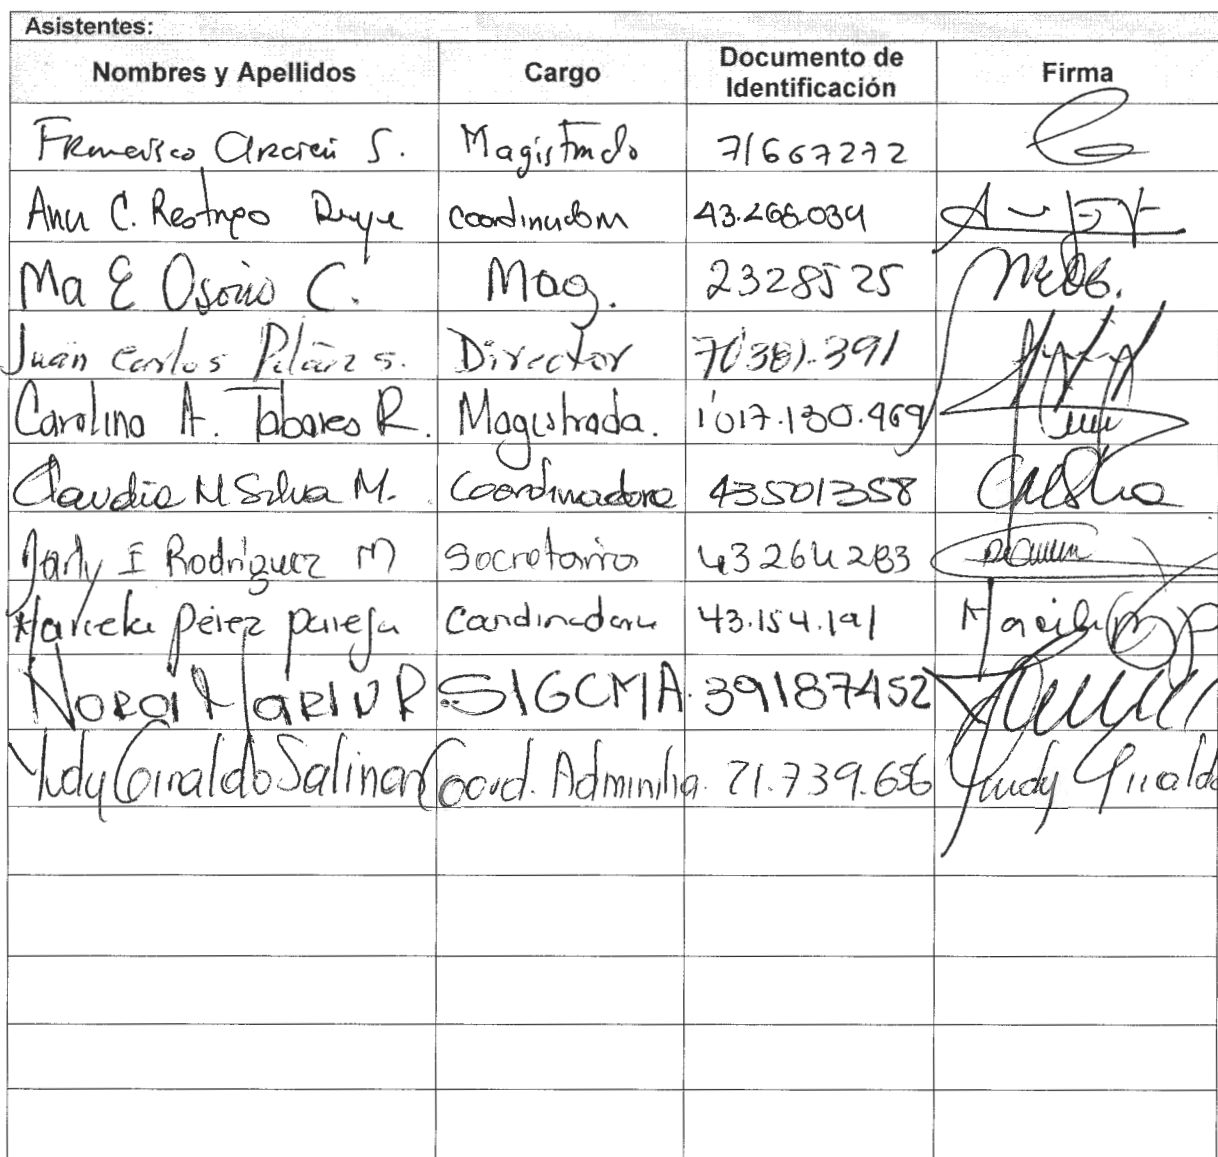 Asistentes:
Nombres y Apellidos Cargo Documento de Identificación Firma
Francisco S. Magistrado 71667272
Ana C. Restrepo Coordinadora 43.266.039
Ma E Osorio C. Mag. 2328525
Juan Carlos s. Director 70'381.391
Carolina A. Tabares R. Magistrada. 1'017.130.969
Claudia M Silva M. Coordinadora 43501358
I Rodriguez M Secretaria 43264283
Marcela Pérez Pareja Coordinadora 43.154.191 Marcela
Nora Marin R SIGCMA. 39187452
Yudy Giraldo Salinas Coord. Administra. 21.739.656 Yudy Giraldo